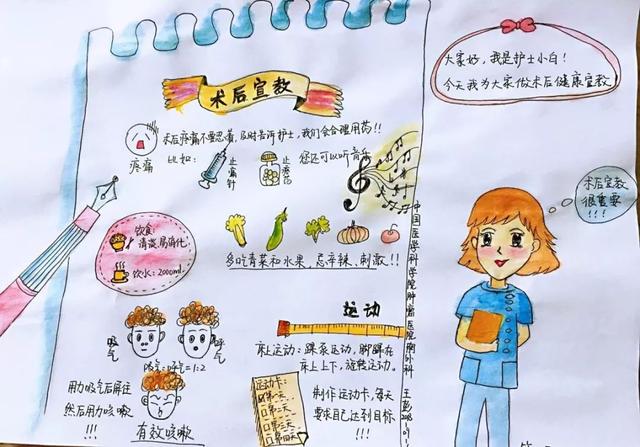 大家好，我是护士小白！
今天我为大家做术后健康宣教
术后宣教
术后疼痛不要忍着，及时告诉护士，我们会合理用药！！
疼痛
比如：
止痛针
止疼药
您还可以听音乐
术后宣教
很重要
!!!
饮食：
清淡、易消化
饮水：2000ml
多吃青菜和水果，忌辛辣、刺激！！
中国医学科学院肿瘤医院胸外科
运动
吸气
呼气
吸气：呼气=1:2
床上运动：踝泵运动，脚踝在
床上上下，旋转运动。
用力吸气后屏住
然后用力咳嗽
!!!
有效咳嗽
运动卡：
第一天
第二天
第三天
第四天
制作运动卡，每天
要求自己达到目标
!!!